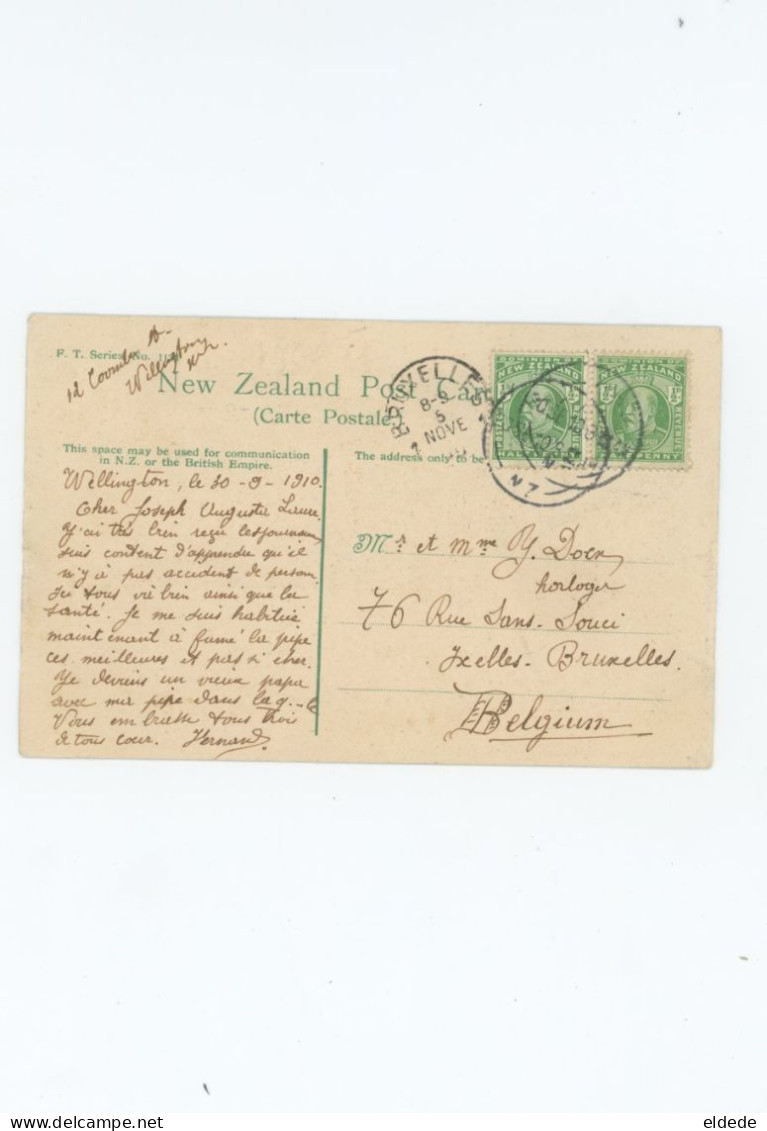 12 Coombe
Wellington
F. T. Series No.
New Zealand Post Card
(Carte Postale)
BRUXELLES
8-9
5
NOVE
DOMINION OF
NEW ZEALAND
HALF PENNY
DOMINION OF
NEW ZEALAND
REVENUE
PENNY
N Z
This space may be used for communication
in N.Z. or the British Empire.
The address only to be
Wellington, le 30-9-1910.
Cher Joseph Augusta Laure
J'ai très bien reçu les journaux
suis content d'apprendre qu'il
n'y à pas accident de person.
Ici tous va bien ainsi que la
santé. Je me suis habitué
maintenant à fumé la pipe
ces meilleures et pas si cher.
Je deviens un vieux papa
avec ma pipe dans la g...le
Vous embrasse tous trois
de tous cœur. Fernand.
Mr et Mme J. Doer
horloger
76 Rue Sans-Souci
Ixelles-Bruxelles.
Belgium
delcampe.net
eldede